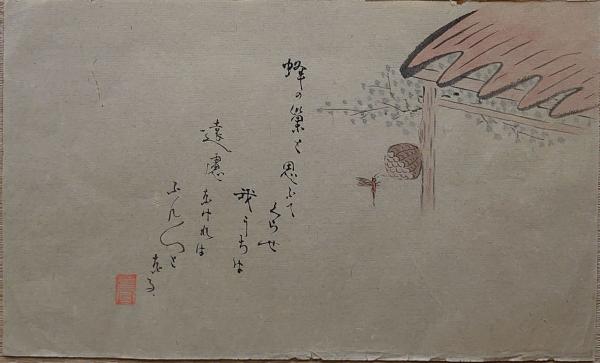 蜂の巣と思ふて
くらせ
我うちは
遠慮
なければ
ふんへつと
なる